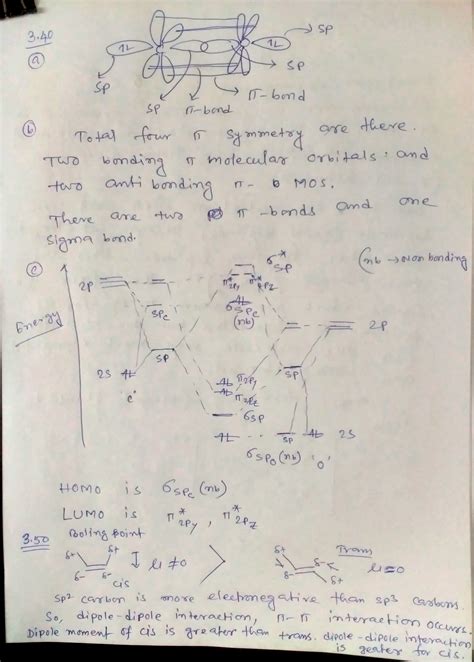 3.40
(a)
1L
1L
SP
SP
SP
SP
π-bond
π-bond
(b) Total four π symmetry are there.
Two bonding π molecular orbitals: and
two anti bonding π- MOS.
There are two π-bonds and one
sigma bond.
(c)
(nb → non bonding
σ*SP
π*2Py π*2Pz
2P
SPc
σSPc
(nb)
2P
Energy
SP
SP
2S
'c'
π2Py
π2Pz
σSP
SP
2S
σSPo (nb) 'o'
HOMO is σSPc (nb)
LUMO is π*2Py , π*2Pz
3.50 Boiling point
δ+ δ+ μ ≠ 0 > δ+ δ- Trans μ=0
δ- δ- cis δ- δ+
SP² carbon is more electronegative than SP³ carbons.
So, dipole-dipole interaction, π-π interaction occurs.
Dipole moment of cis is greater than trans. dipole-dipole interaction
is geater for cis.